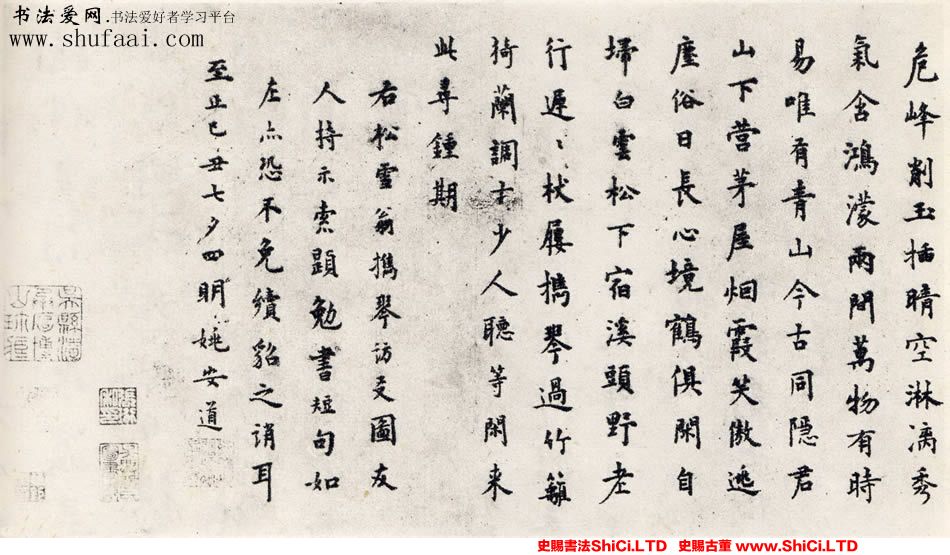 书法爱网.书法爱好者学习平台
www.shufaai.com
危峰削玉插晴空淋漓秀
氣含鴻濛兩間萬物有時
易唯有青山今古同隱君
山下营茅屋烟霞笑傲逃
塵俗日長心境鶴俱閑自
掃白雲松下宿溪頭野老
行遲〻杖屨攜琴過竹籬
猗蘭調古少人聽等閑来
此尋鍾期
右松雪翁攜琴訪友圖友
人持示索題勉書短句如
左亦恐不免續貂之誚耳
至正己丑七夕四明姚安道
史賜書法ShiCi.LTD 史賜古董 www.ShiCi.LTD